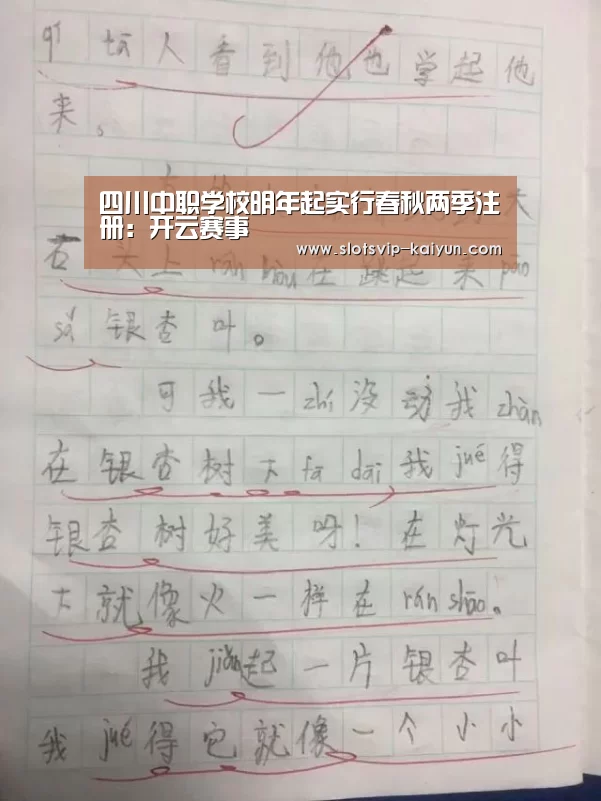 qí tā人看到他也学起他
来。
四川中职学校明年起实行春秋两季注
册：开云赛事
www.slotsvip-kaiyun.com
石头上 在跳起来pāo
sǎ银杏叶。
可我一zhí没动我zhàn
在银杏树下fā dāi我jué得
银杏树好美呀！在灯光
下就像火一样在rán shāo。
我jiǎn起一片银杏叶
我jué得它就像一个小小